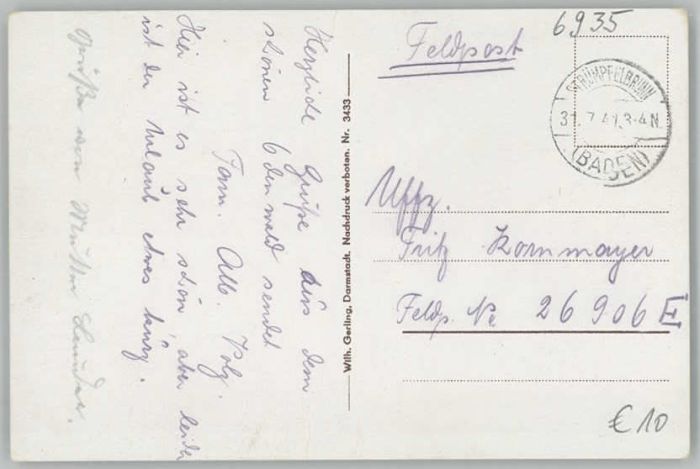 6935
Feldpost
STRÜMPFELBRUNN
31.7.41.3-4N
(BADEN)
Uffz.
Fritz Kornmayer
Feldp. No 26906E
€10
Wilh. Gerling, Darmstadt. Nachdruck verboten. Nr. 3433
Herzliche Grüße aus dem
schönen Odenwald sendet
Fam. Alb.
Hier ist es sehr schön, aber leider
ist der Urlaub etwas kurz.
Grüße von